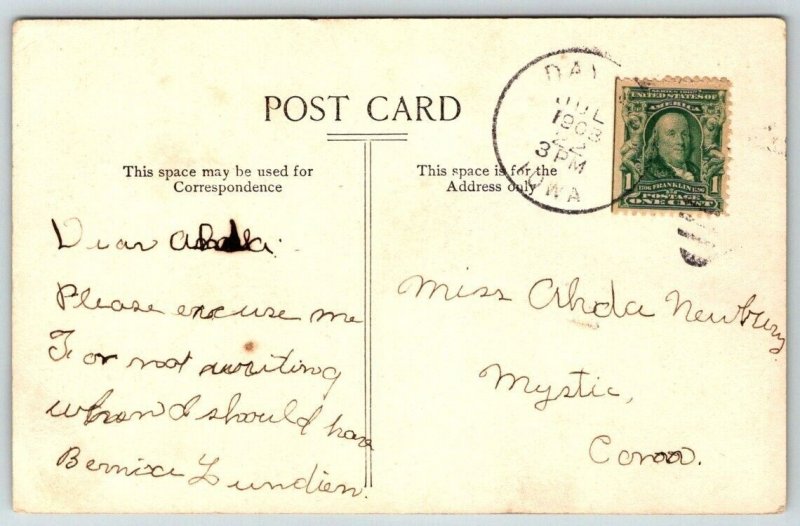 POST CARD
This space may be used for
Correspondence
This space is for the
Address only
DAY
JUL
22
1908
3 PM
IOWA
SERIES 1902
UNITED STATES OF
AMERICA
1
1706 FRANKLIN 1790
POSTAGE
ONE CENT
Dear
Please excuse me
For not writing
when I should have
Bernice Lundien.
Miss Ahda Newbury
Mystic,
Conn.